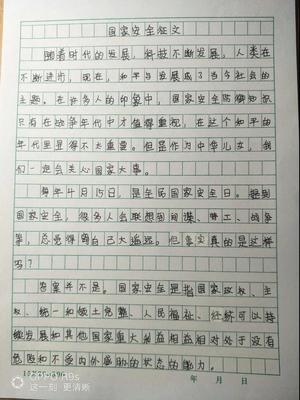 国家安全征文
随着时代的发展，科技不断发展，人类在
不断进步，现在，和平与发展成了当今社会的
主题。在许多人的印象中，国家安全防范知识
只有在战争年代中才值得重视，在这个和平的
年代里显得不太重要。但是作为中华儿女，我
们一定会关心国家大事。
每年4月15日，是全民国家安全日。提到
国家安全，很多人会联想到间谍、特工、战争
等，总觉得离自己太遥远。但事实真的是这样
吗？
答案并不是。国家安全是指国家政权、主
权、统一和领土完整、人民福祉、经济可以持
续发展和其他国家重大利益相益相对处于没有
危险和不受内外威胁的状态的能力。
年 月 日
OPPO R9s
这一刻 更清晰